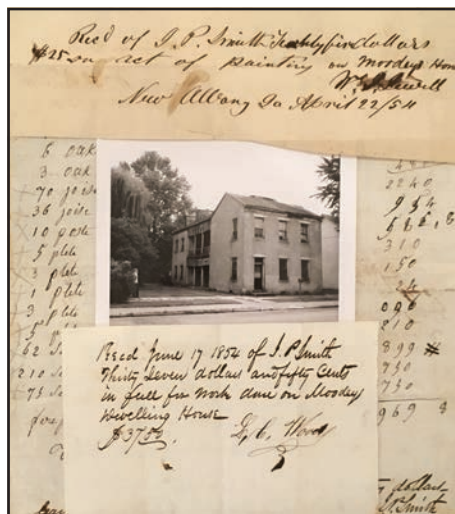 Recd of J. P. Smith Twentyfive dollars
$25 on act of painting on Moodys House
New Albany Ia April 22/54
6 oak
3 oak
70 joise
36 joise
10 poste
5 plate
3 plate
1 plate
3 plate
5 plate
62
210
75
2240
954
310
150
24
090
210
899 #
750
750
969 8
Recd June 17 1854 of J. P. Smith
Thirty Seven dollars and fifty Cents
in full for work done on Moodys
Dwelling House
$37.50. L, C, Wood
dollars
Smith